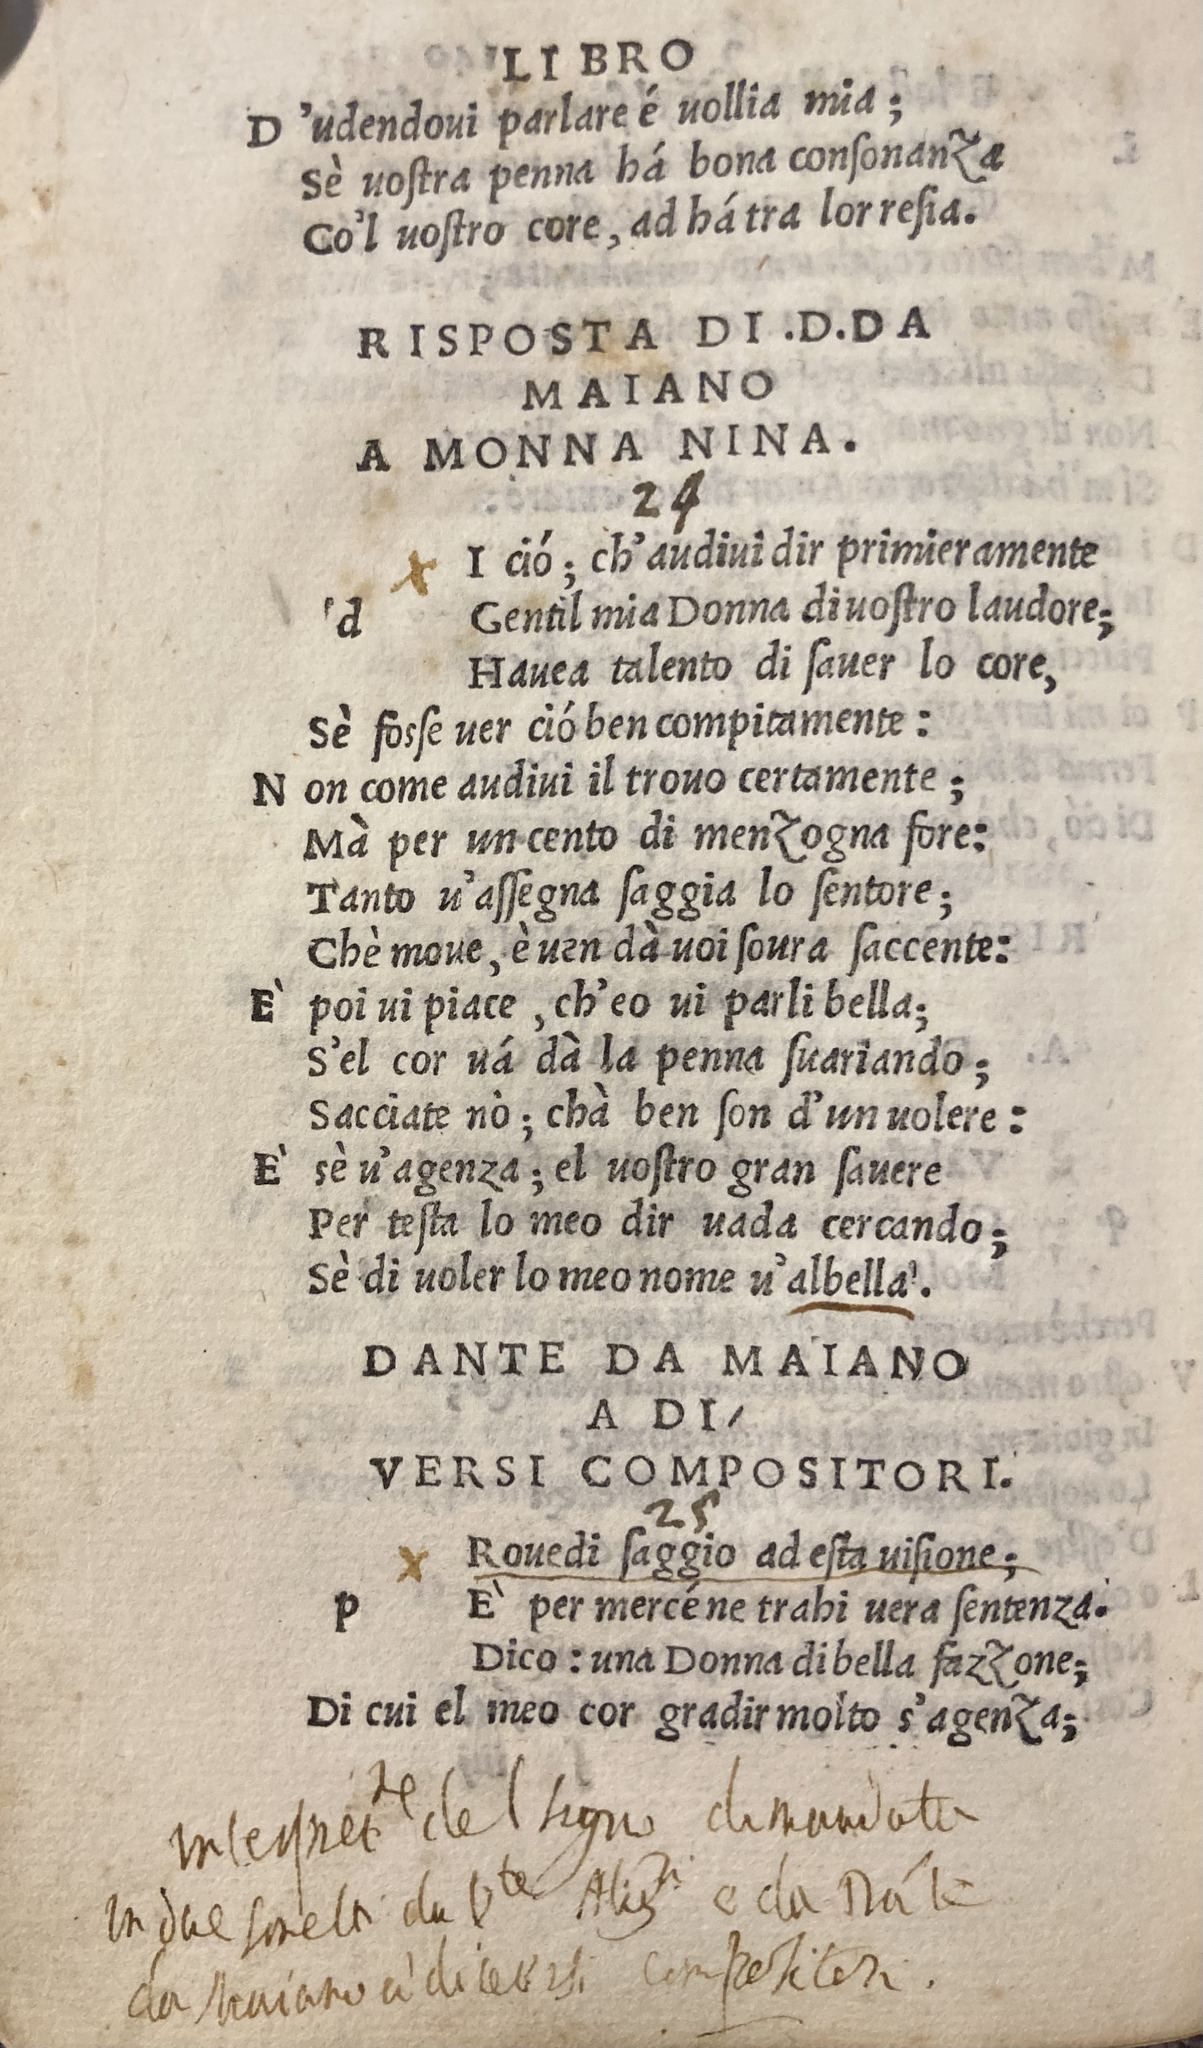 LIBRO
D 'udendoui parlare é uollia mia;
Sè uoſtra penna há bona conſonanza
Co'l uoſtro core, ad há tra lor reſia.
RISPOSTA DI .D.DA
MAIANO
A MONNA NINA.
24
x I ció; ch'audiui dir primieramente
'd Gentil mia Donna di uoſtro laudore;
Hauea talento di ſauer lo core,
Sè foſſe uer ció ben compitamente:
N on come audiui il trouo certamente;
Mà per un cento di menzogna fore:
Tanto u'aſſegna ſaggia lo ſentore;
Chè moue, è uen dà uoi ſoura ſaccente:
E` poi ui piace, ch'eo ui parli bella;
S'el cor uá dà la penna ſuariando;
Sacciate nò; chà ben ſon d'un uolere:
E` sè u'agenza; el uoſtro gran ſauere
Per teſta lo meo dir uada cercando;
Sè di uoler lo meo nome u'albella'.
DANTE DA MAIANO
A DI/
VERSI COMPOSITORI.
25
x Rouedi ſaggio ad eſta uiſione;
p E` per mercé ne trahi uera ſentenza.
Dico: una Donna di bella fazzone;
Di cui el meo cor gradir molto s'agenza;
del dimandata
in due da e da
da Maiano a diversi compositori.